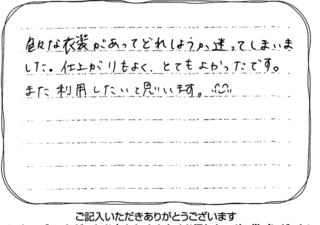 色々な衣装があってどれしようか迷ってしまいま
した。仕上がりもよく、とてもよかったです。
また利用したいと思います。
ご記入いただきありがとうございます